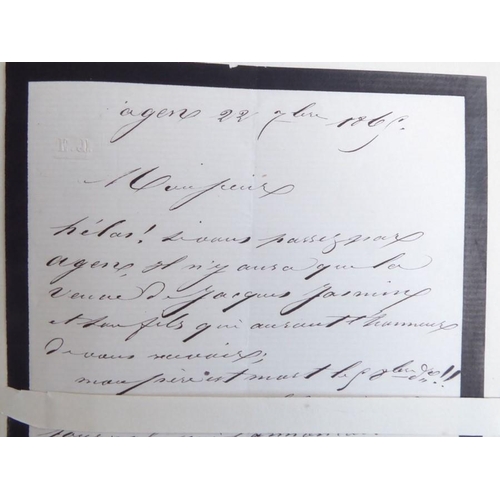 agen 22 7bre 1865.
Monsieur
hélas! si vous passez par
agen, il n'y aura que la
veuve de Jacques Jasmin
et son fils qui auront l'honneur
de vous recevoir;
mon père est mort le 5 8bre !!